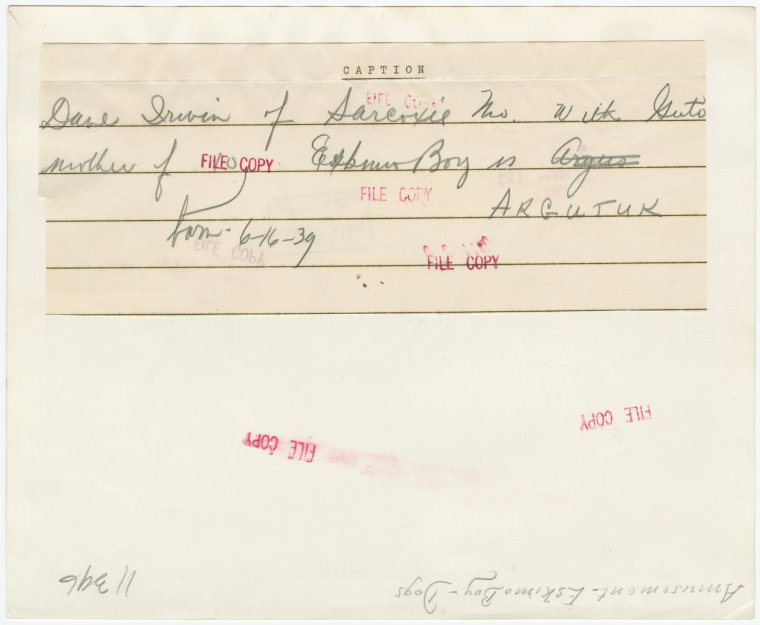 CAPTION
FILE COPY
Dave Irwin of Sarcoxie Mo. With Guto
Mother of Eskimo Boy is Argus
FILE COPY
FILE COPY
ARGUTUK
born- 6-16-39
FILE COPY
FILE COPY
FILE COPY
FILE COPY
11346
Amusement-Eskimo Boy-Dogs